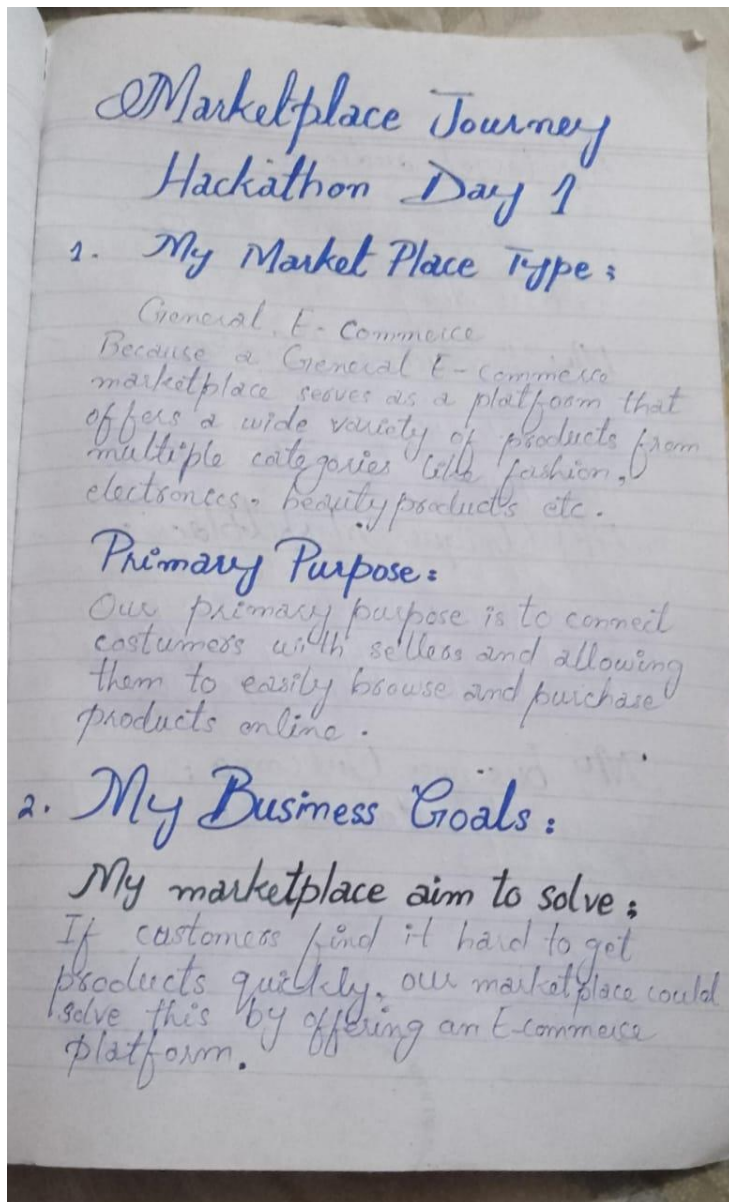 Marketplace Journey
Hackathon Day 1
1. My Market Place Type:
General E-Commerce
Because a General E-commerce
marketplace serves as a platform that
offers a wide variety of products from
multiple categories like fashion,
electronces, beautyproducts etc.
Primary Purpose:
Our primary purpose is to connect
costumers with sellers and allowing
them to easily browse and purchase
products online.
2. My Business Goals:
My marketplace aim to solve:
If customers find it hard to get
products quickly, our marketplace could
solve this by offering an E-commerce
platform.